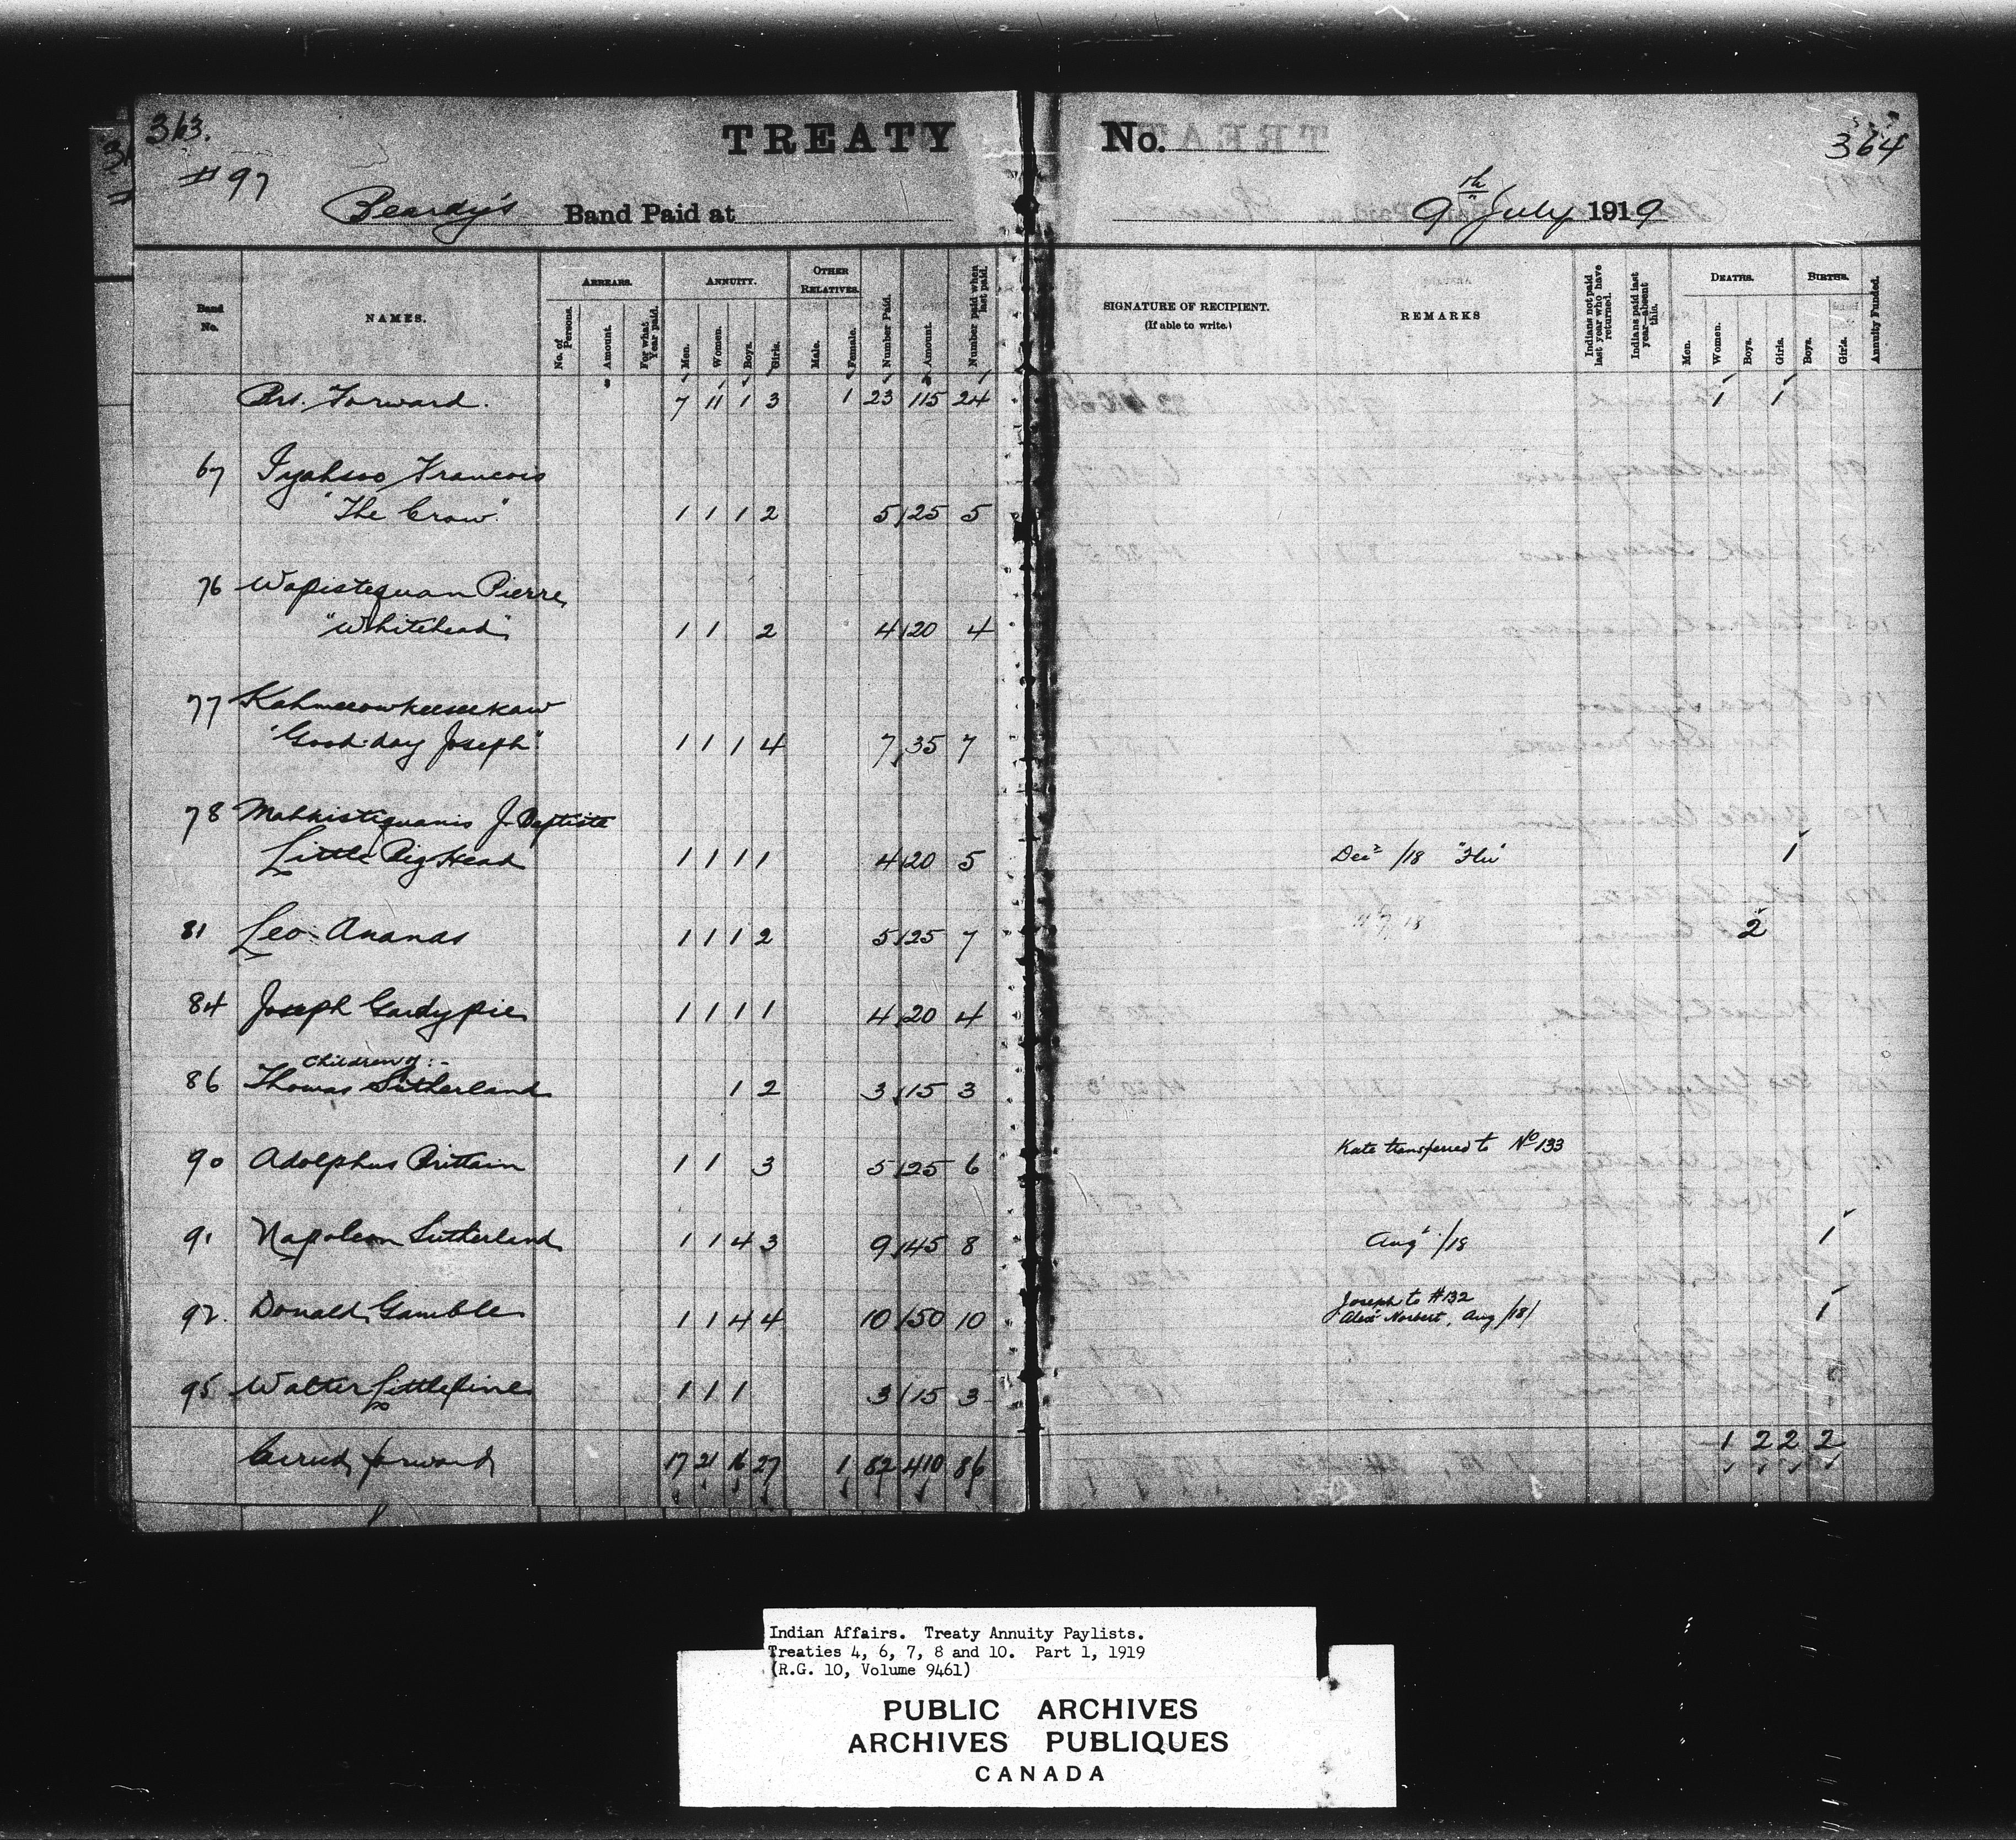 363.
TREATY No.
364
#97
Beardy's Band Paid at
9th July 1919
Band No.
NAMES.
ARREARS.
No. of Persons.
Amount.
For what Year paid.
ANNUITY.
Men.
Women.
Boys.
Girls.
OTHER RELATIVES.
Male.
Female.
Number Paid.
Amount.
Number paid when last paid.
SIGNATURE OF RECIPIENT.
(If able to write.)
REMARKS
Indians not paid last year who have returned.
Indians paid last year—absent this.
DEATHS.
Men.
Women.
Boys.
Girls.
BIRTHS.
Boys.
Girls.
Annuity Funded.
Brt. Forward. 7 11 1 3 1 23 115 24 1 1
67 Iyahsoo Francois
"The Crow" 1 1 1 2 5 25 5
76 Wapistequan Pierre
"Whitehead" 1 1 2 4 20 4
77 Kahmeeowkeeseekaw
"Good-day Joseph" 1 1 1 4 7 35 7
78 Mahkistiquanis J. Baptiste
Little Big Head 1 1 1 1 4 20 5 Dec /18 "Flu" 1
81 Leo Ananas 1 1 1 2 5 25 7 2
84 Joseph Gardypie 1 1 1 1 4 20 4
Children of:-
86 Thomas Sutherland 1 2 3 15 3
90 Adolphus Brittain 1 1 3 5 25 6 Kate transferred to No 133
91 Napoleon Sutherland 1 1 4 3 9 45 8 Aug /18 1
92. Donald Gamble 1 1 4 4 10 50 10 Joseph to #132
Alex Norbert, Aug /18/ 1
95 Walter Littlepine 1 1 1 3 15 3
Carried forward 17 21 16 27 1 82 410 86 1 2 2 2
Indian Affairs. Treaty Annuity Paylists.
Treaties 4, 6, 7, 8 and 10. Part 1, 1919
(R.G. 10, Volume 9461)
PUBLIC ARCHIVES
ARCHIVES PUBLIQUES
CANADA